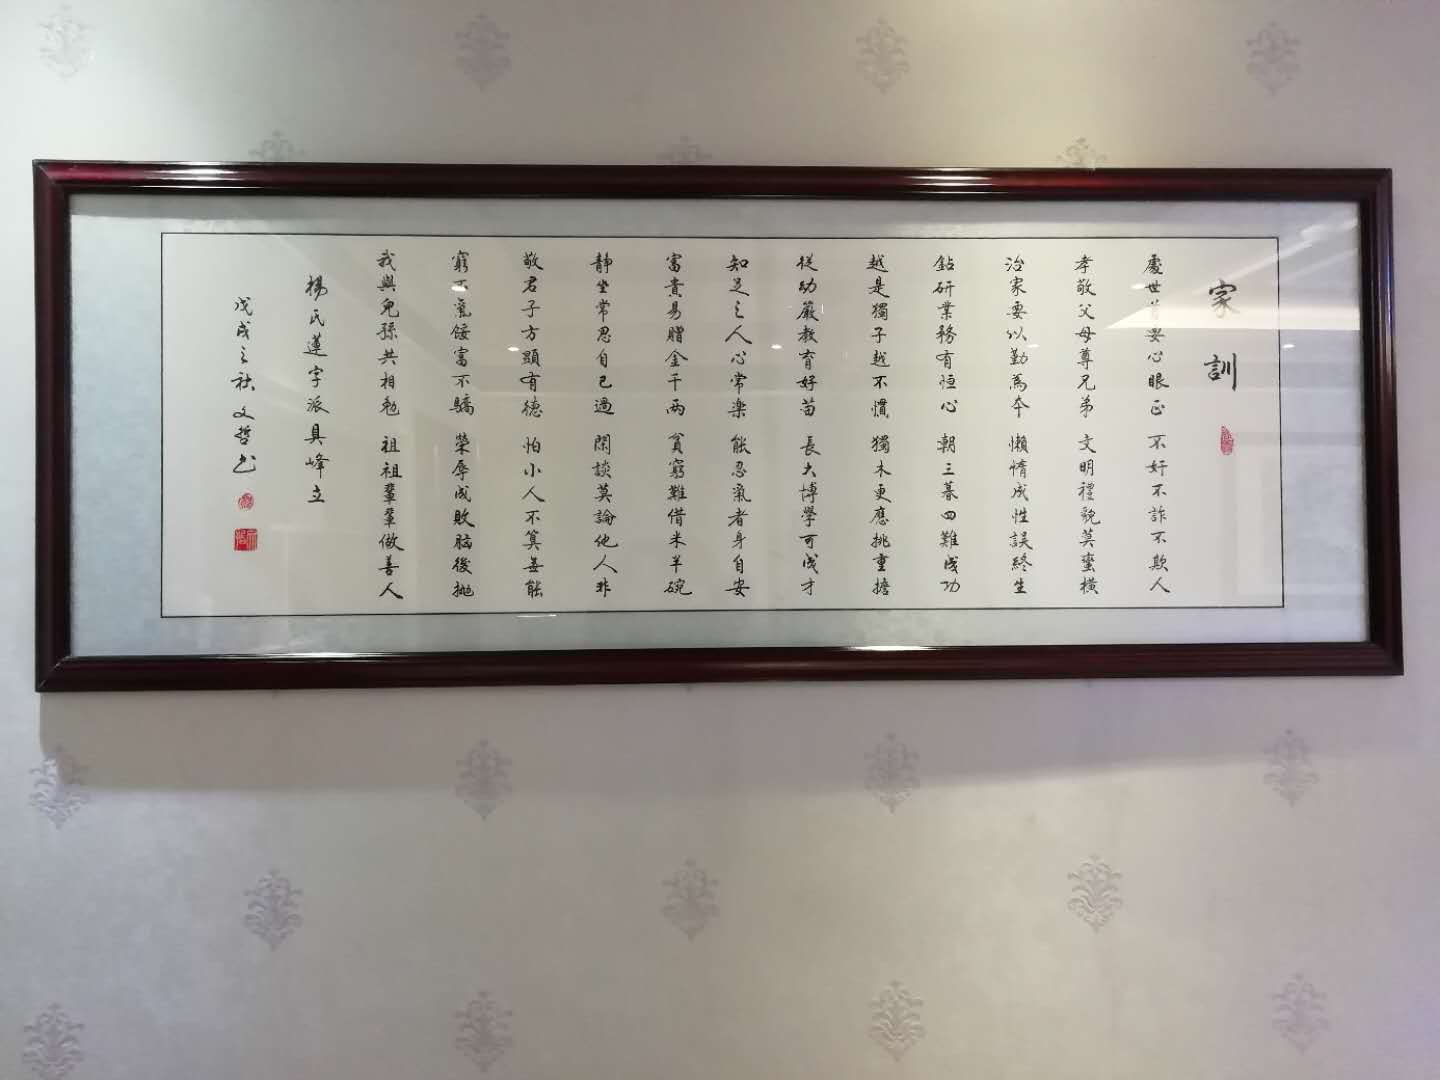 家訓
處世首要心眼正 不奸不詐不欺人
孝敬父母尊兄弟 文明禮貌莫蛮橫
治家要以勤為本 懶惰成性誤終生
鈷研業務有恒心 朝三暮四難成功
越是獨子越不慣 獨木更應挑重擔
從幼嚴教育好苗 長大博學可成才
知足之人心常樂 能忍氣者身自安
富貴易贈金千兩 貧窮難借米半碗
靜坐常思自己過 閑談莫論他人非
敬君子方顯有德 怕小人不算無能
窮不氣餒富不驕 榮辱成敗腦後抛
我與兒孫共相勉 祖祖輩輩做善人
楊氏蓮字派具峰立
戊戌之秋文哲书